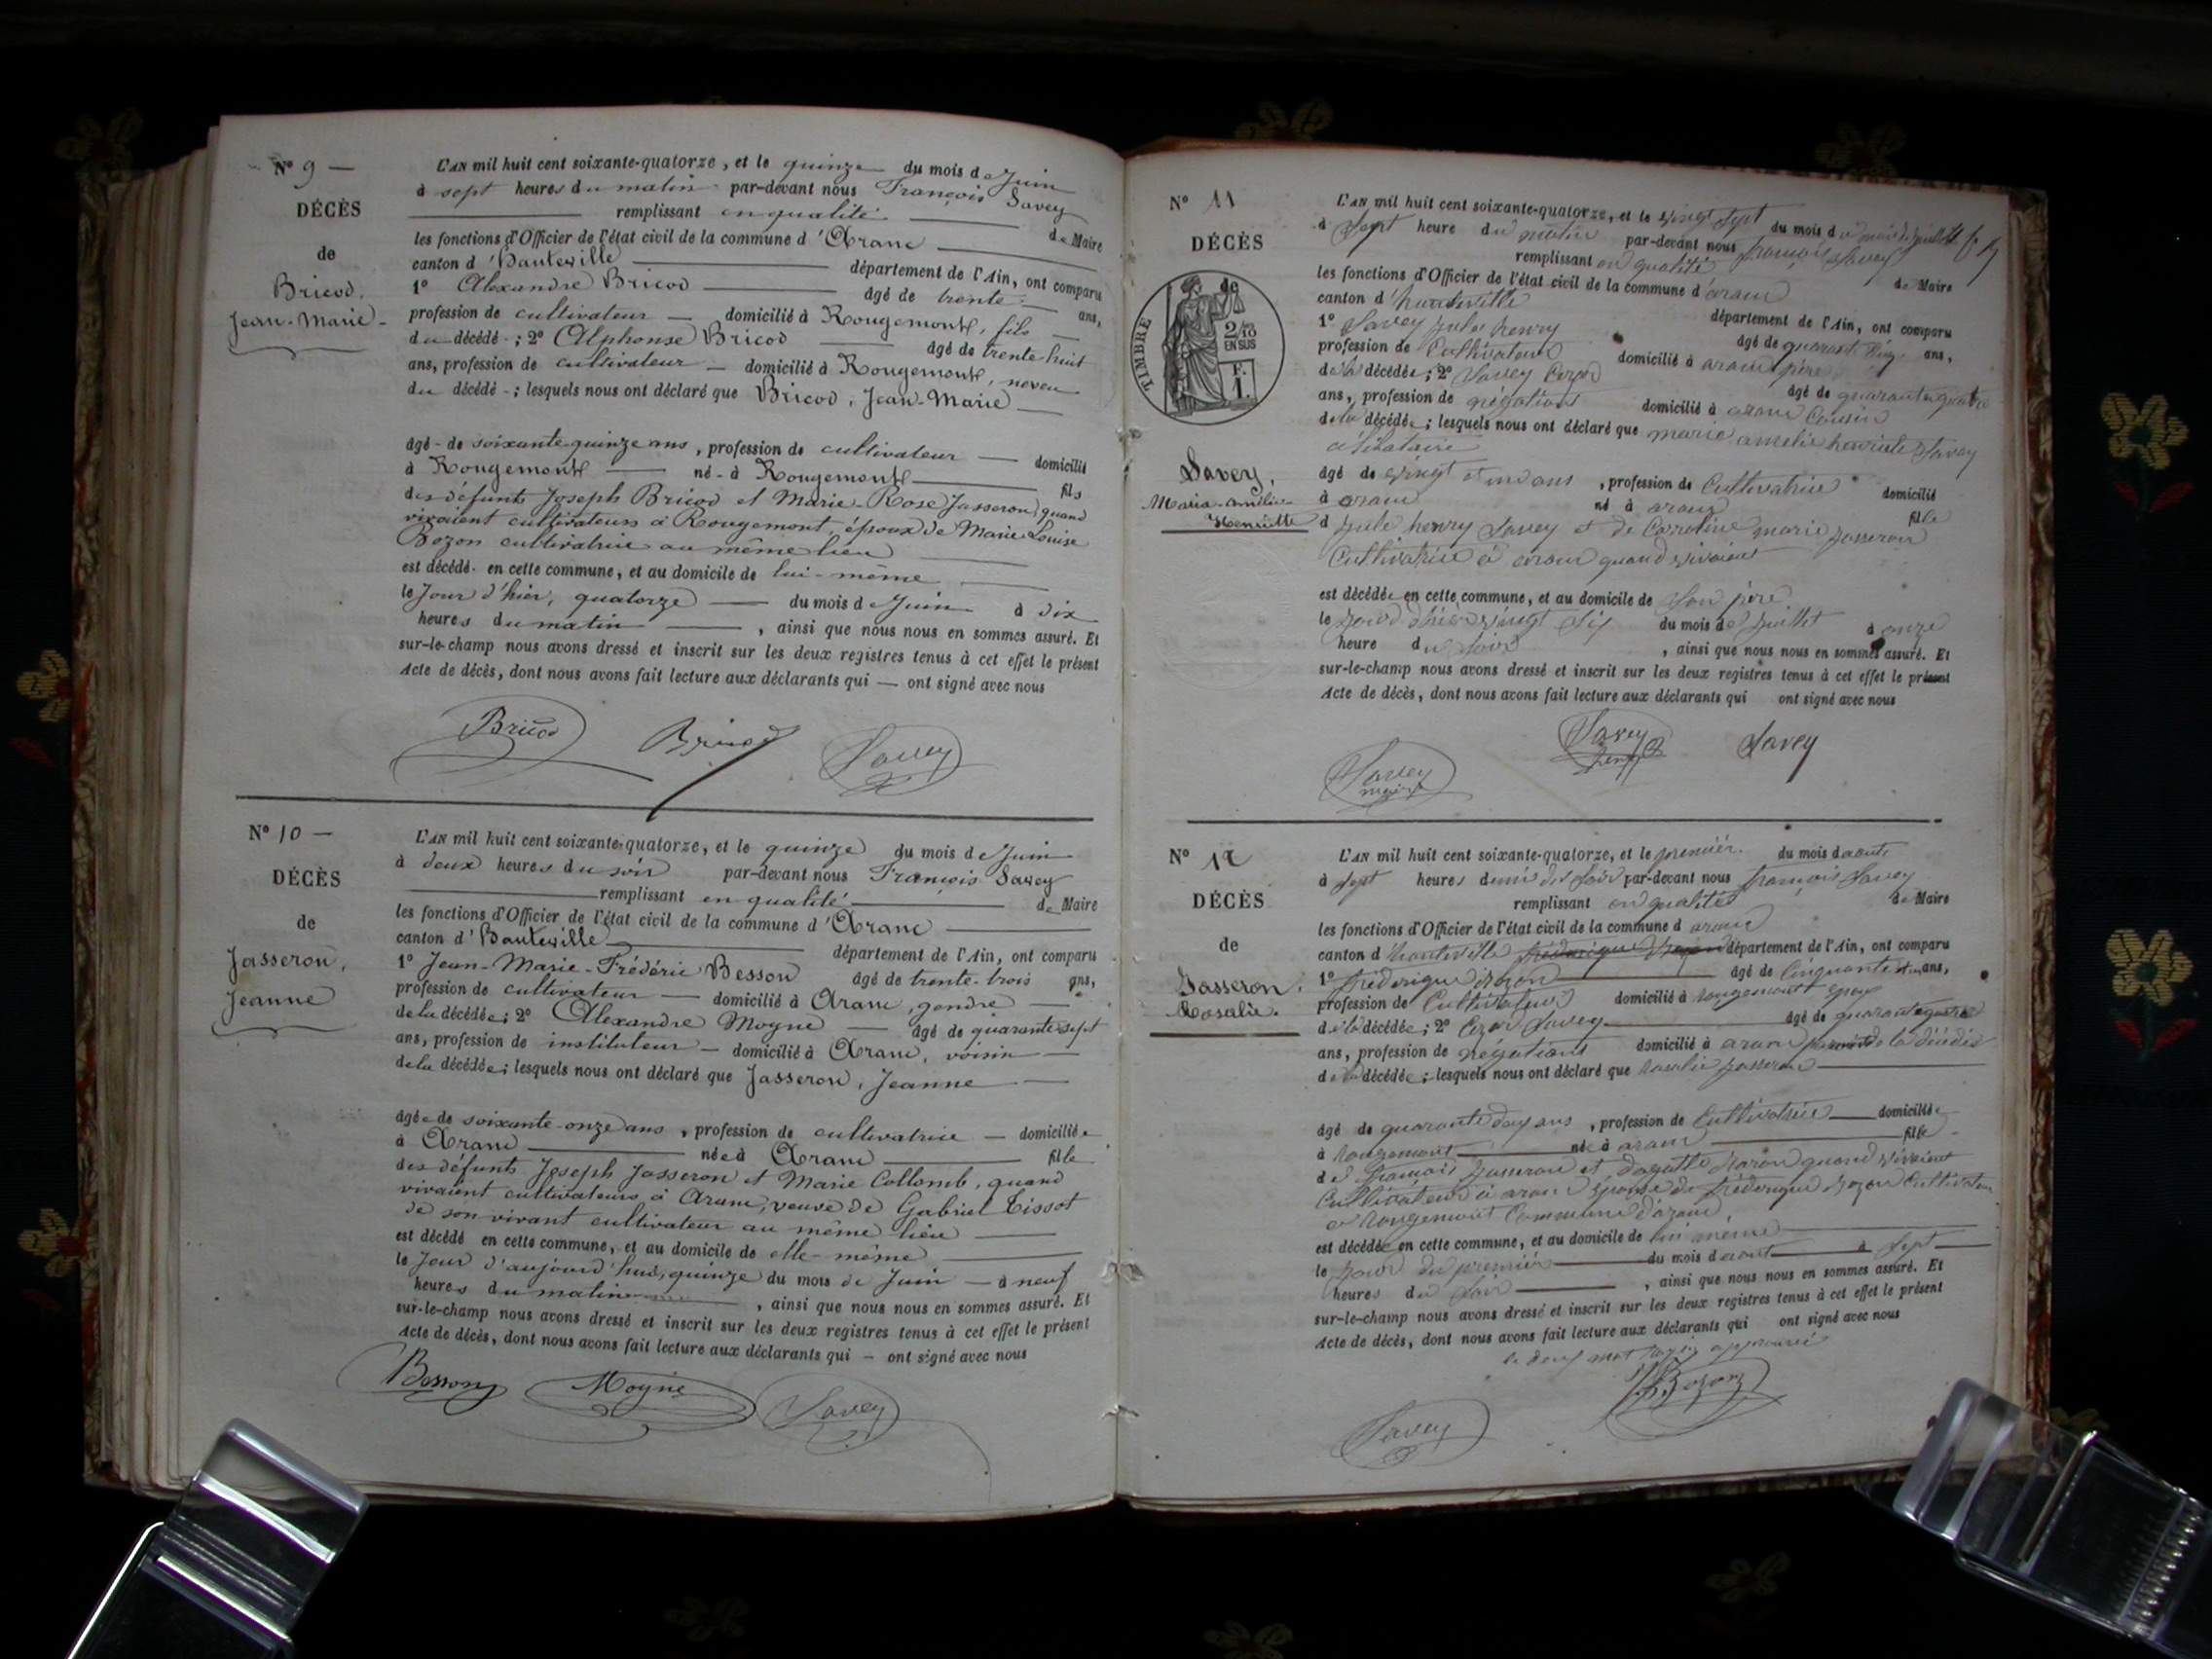 Nº 9 —
DÉCÈS
de
Bricod,
Jean-Marie
L'AN mil huit cent soixante-quatorze, et le quinze du mois de Juin
à sept heures du matin par-devant nous François Savey
remplissant en qualité de Maire
les fonctions d'Officier de l'état civil de la commune d'Aranc
canton d'Hauteville département de l'Ain, ont comparu
1º Alexandre Bricod âgé de trente ans,
profession de cultivateur domicilié à Rougemont, fils
du décédé; 2º Alphonse Bricod âgé de trente-huit
ans, profession de cultivateur domicilié à Rougemont, neveu
du décédé; lesquels nous ont déclaré que Bricod, Jean-Marie
âgé de soixante-quinze ans, profession de cultivateur domicilié
à Rougemont né à Rougemont fils
des défunts Joseph Bricod et Marie-Rose Jasseron, quand
vivaient cultivateurs à Rougemont, époux de Marie Louise
Bozon cultivatrice au même lieu
est décédé en cette commune, et au domicile de lui-même
le Jour d'hier, quatorze du mois de Juin à dix
heures du matin, ainsi que nous nous en sommes assuré. Et
sur-le-champ nous avons dressé et inscrit sur les deux registres tenus à cet effet le présent
Acte de décès, dont nous avons fait lecture aux déclarants qui — ont signé avec nous
Bricod Bricod Savey
Nº 10 —
DÉCÈS
de
Jasseron,
Jeanne
L'AN mil huit cent soixante-quatorze, et le quinze du mois de Juin
à deux heures du soir par-devant nous François Savey
remplissant en qualité de Maire
les fonctions d'Officier de l'état civil de la commune d'Aranc
canton d'Hauteville département de l'Ain, ont comparu
1º Jean-Marie-Frédéric Besson âgé de trente-trois ans,
profession de cultivateur — domicilié à Aranc, gendre —
de la décédée; 2º Alexandre Moyne — âgé de quarante-sept
ans, profession de instituteur — domicilié à Aranc, voisin —
de la décédée; lesquels nous ont déclaré que Jasseron, Jeanne —
âgée de soixante-onze ans, profession de cultivatrice — domiciliée
à Aranc née à Aranc fille
des défunts Joseph Jasseron et Marie Collomb, quand
vivaient cultivateurs à Aranc, veuve de Gabriel Tissot
de son vivant cultivateur au même lieu
est décédé en cette commune, et au domicile de elle-même
le Jour d'aujourd'hui, quinze du mois de Juin — à neuf
heures du matin, ainsi que nous nous en sommes assuré. Et
sur-le-champ nous avons dressé et inscrit sur les deux registres tenus à cet effet le présent
Acte de décès, dont nous avons fait lecture aux déclarants qui — ont signé avec nous
Besson Moyne Savey
Nº 11
DÉCÈS
de
TIMBRE
2/10
EN SUS
F.
1.
Savey,
Maria-Amélie-
Henriette
L'AN mil huit cent soixante-quatorze, et le vingt sept du mois du mois de juillet
à sept heure du matin par-devant nous françois Savey
remplissant en qualité de Maire
les fonctions d'Officier de l'état civil de la commune d'aranc
canton d'hauteville département de l'Ain, ont comparu
1º Savey jules henry âgé de quarante ans,
profession de Cultivateur domicilié à aranc père
de la décédée; 2º Savey âgé de quarante quatre
ans, profession de négotians domicilié à aranc Cousin
de la décédée; lesquels nous ont déclaré que marie amelie henriete Savey
célibataire
âgé de vingt et un ans, profession de Cultivatrice domicilié
à aranc né à aranc fille
d jule henry Savey et de Carroline marie jasseron
Cultivatrice à aranc quand vivaient
est décédée en cette commune, et au domicile de son père
le jour d'hier vingt six du mois de juillet à onze
heure du soir, ainsi que nous nous en sommes assuré. Et
sur-le-champ nous avons dressé et inscrit sur les deux registres tenus à cet effet le présent
Acte de décès, dont nous avons fait lecture aux déclarants qui ont signé avec nous
Savey Savey
Savey
Nº 12
DÉCÈS
de
Jasseron,
Rosalie.
L'AN mil huit cent soixante-quatorze, et le premier du mois d'aout
à sept heures demis du soir par-devant nous françois Savey
remplissant en qualité de Maire
les fonctions d'Officier de l'état civil de la commune d aranc
canton d'hauteville frédérique Bozon département de l'Ain, ont comparu
1º fréderique Bozon âgé de Cinquante et un ans,
profession de Cultivateur domicilié à rougemont époux
de la décédée; 2º Savey âgé de quarante quatre
ans, profession de négotians domicilié à aranc de la décédée
de la décédée; lesquels nous ont déclaré que rosalie jasseron
âgé de quarante ans, profession de Cultivatrice domiciliée
à rougemont née à aranc fille
de françois jasseron et quand vivaient
Cultivateur à aranc épouse de fréderique Bozon Cultivateur
a rougemont Commune d'aranc
est décédée en cette commune, et au domicile de lui même
le jour du premier du mois d'aout à sept
heures du soir, ainsi que nous nous en sommes assuré. Et
sur-le-champ nous avons dressé et inscrit sur les deux registres tenus à cet effet le présent
Acte de décès, dont nous avons fait lecture aux déclarants qui ont signé avec nous
le deux mot approuvé
Bozon
Savey